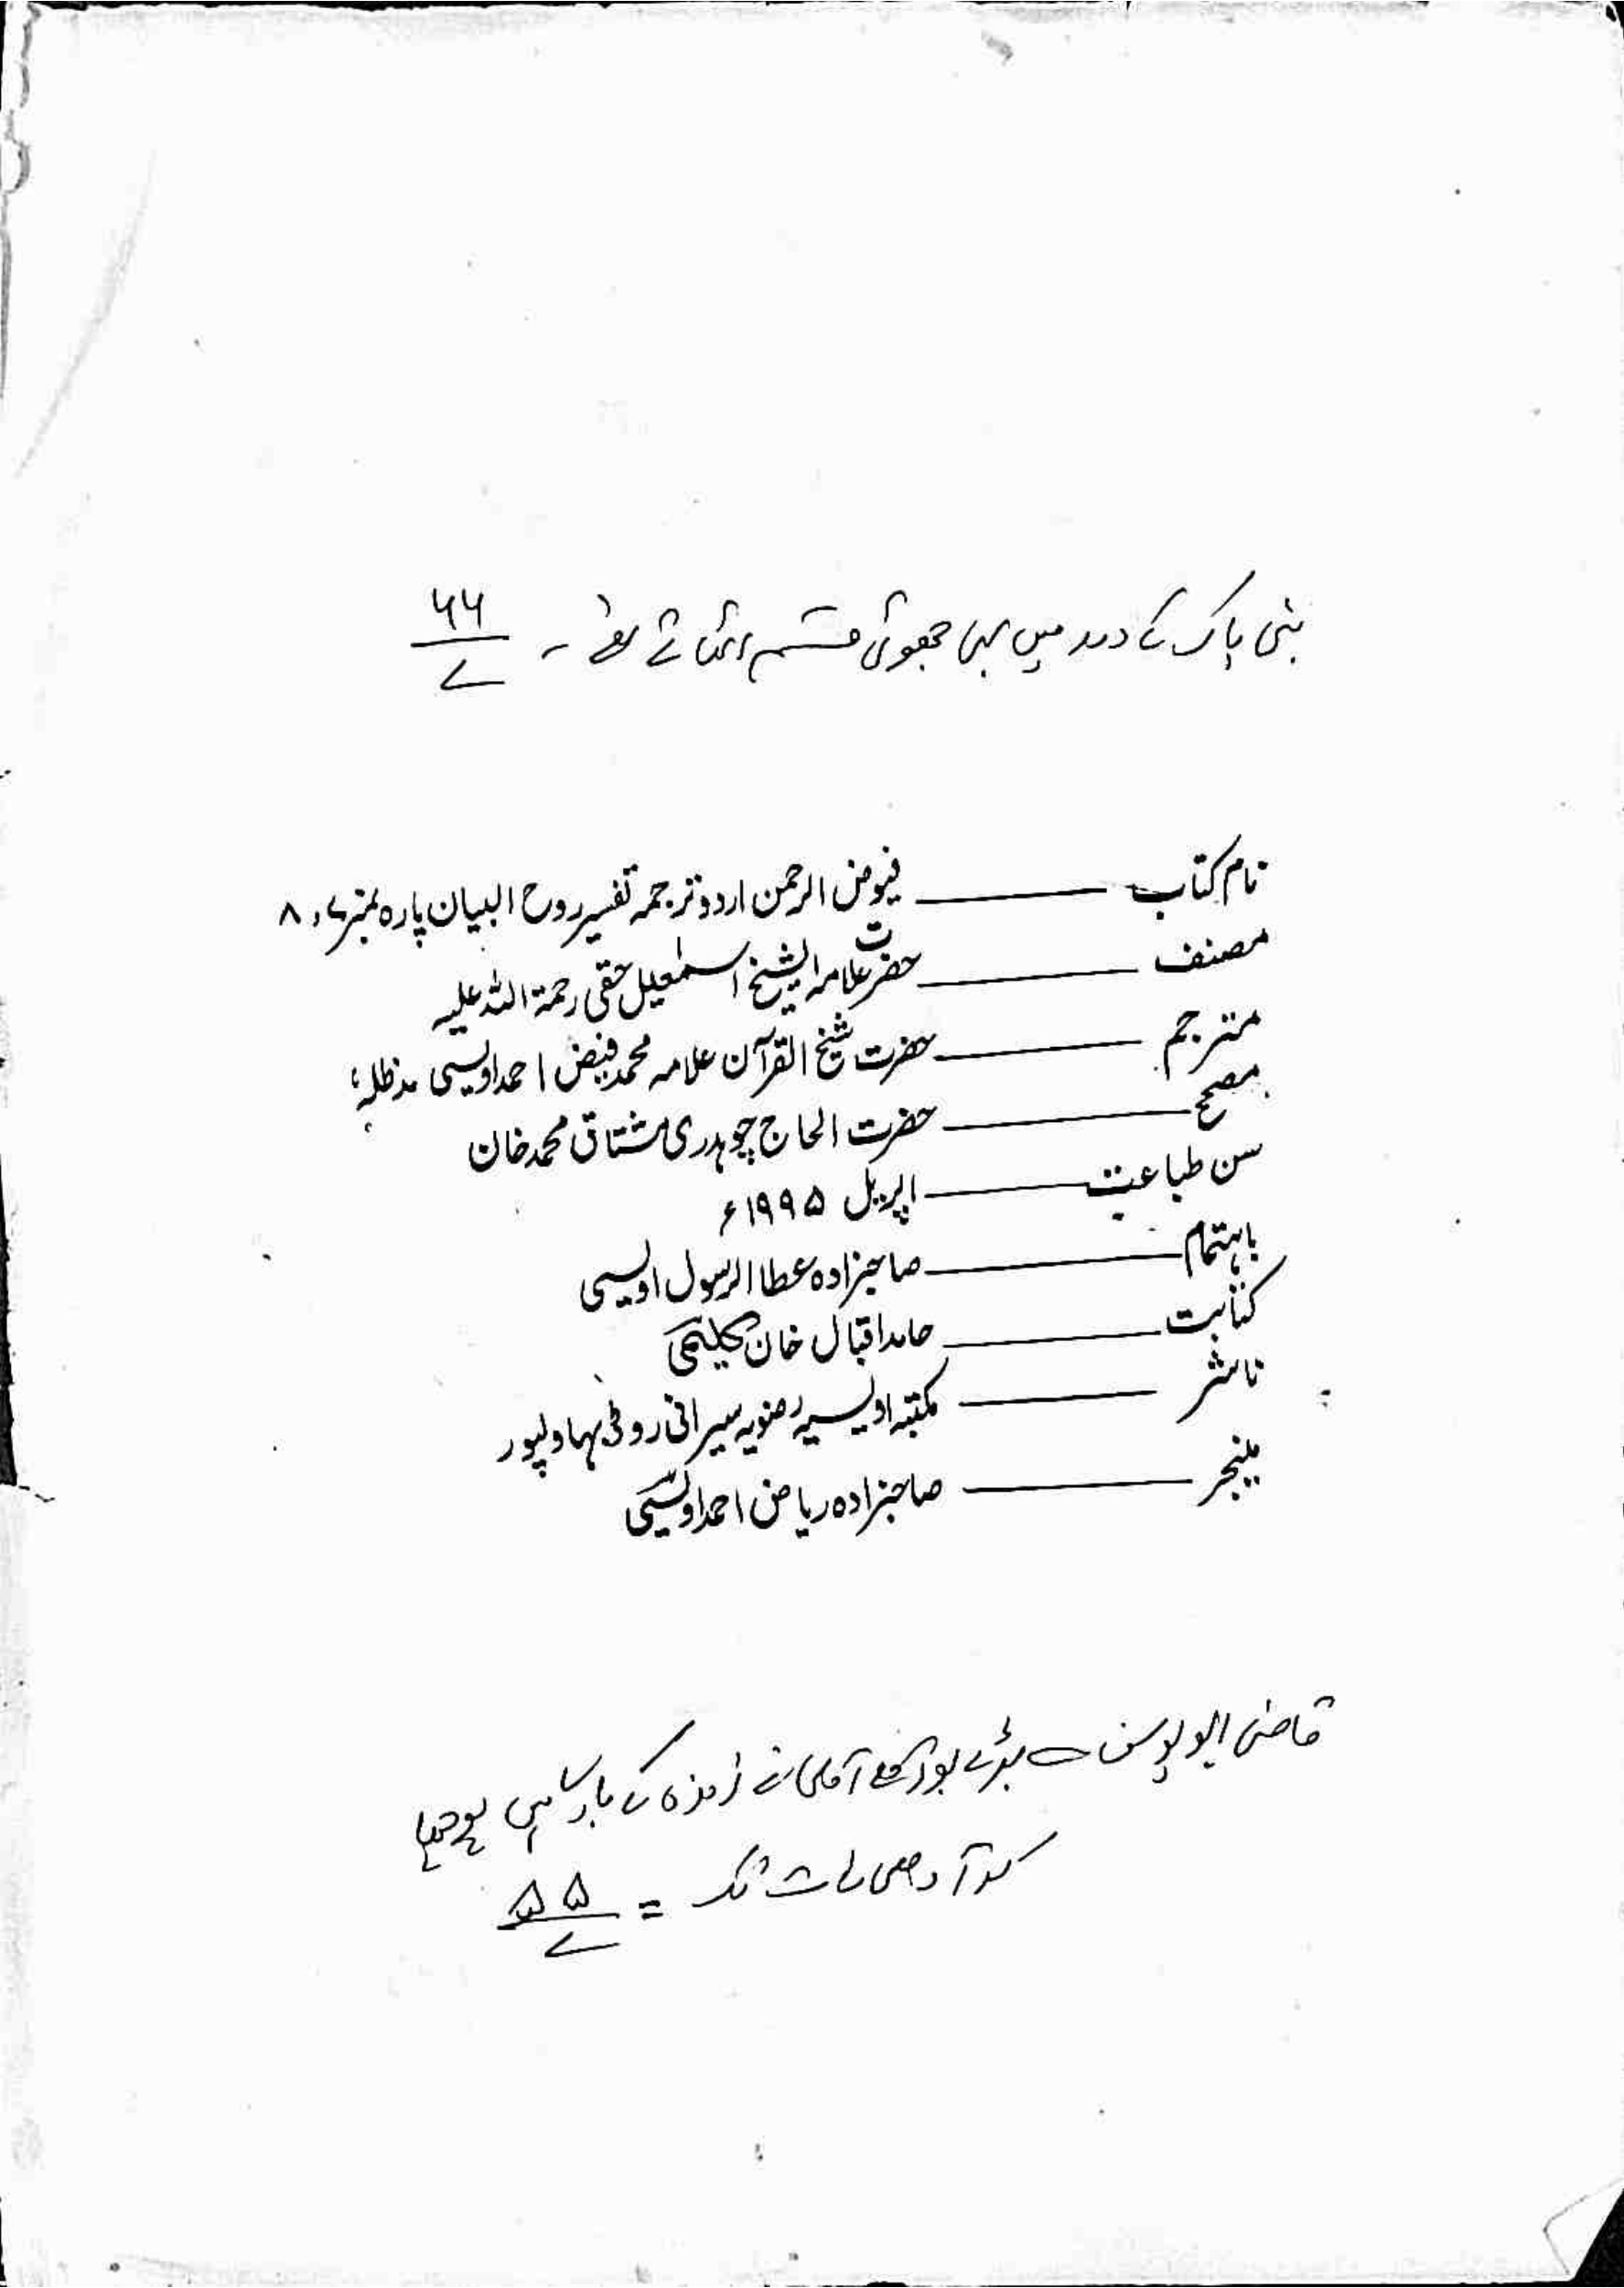 نبی پاک کے دور میں بھی جھوٹی قسم اٹھاتے تھے - ۶۶ / ے
نام کتاب ــــــ فیوض الرحمن اردو ترجمہ تفسیر روح البیان پارہ نمبر ۷، ۸
مصنف ــــــ حضرت علامہ الشیخ اسمٰعیل حقی رحمۃ اللہ علیہ
مترجم ــــــ حضرت شیخ القرآن علامہ محمد فیض احمد اویسی مدظلہ
مصحح ــــــ حضرت الحاج چوہدری مشتاق محمد خان
سن طباعت ــــــ اپریل ۱۹۹۵ء
باہتمام ــــــ صاحبزادہ عطا الرسول اویسی
کتابت ــــــ حامد اقبال خان کلیمی
ناشر ــــــ مکتبہ اویسیہ رضویہ سیرانی روڈ بہاولپور
مینجر ــــــ صاحبزادہ ریاض احمد اویسی
قاضی ابو یوسف سے بوڑھے آدمی نے روزہ کے بارے میں پوچھا
آدھی رات تک = ۵۵ / ے